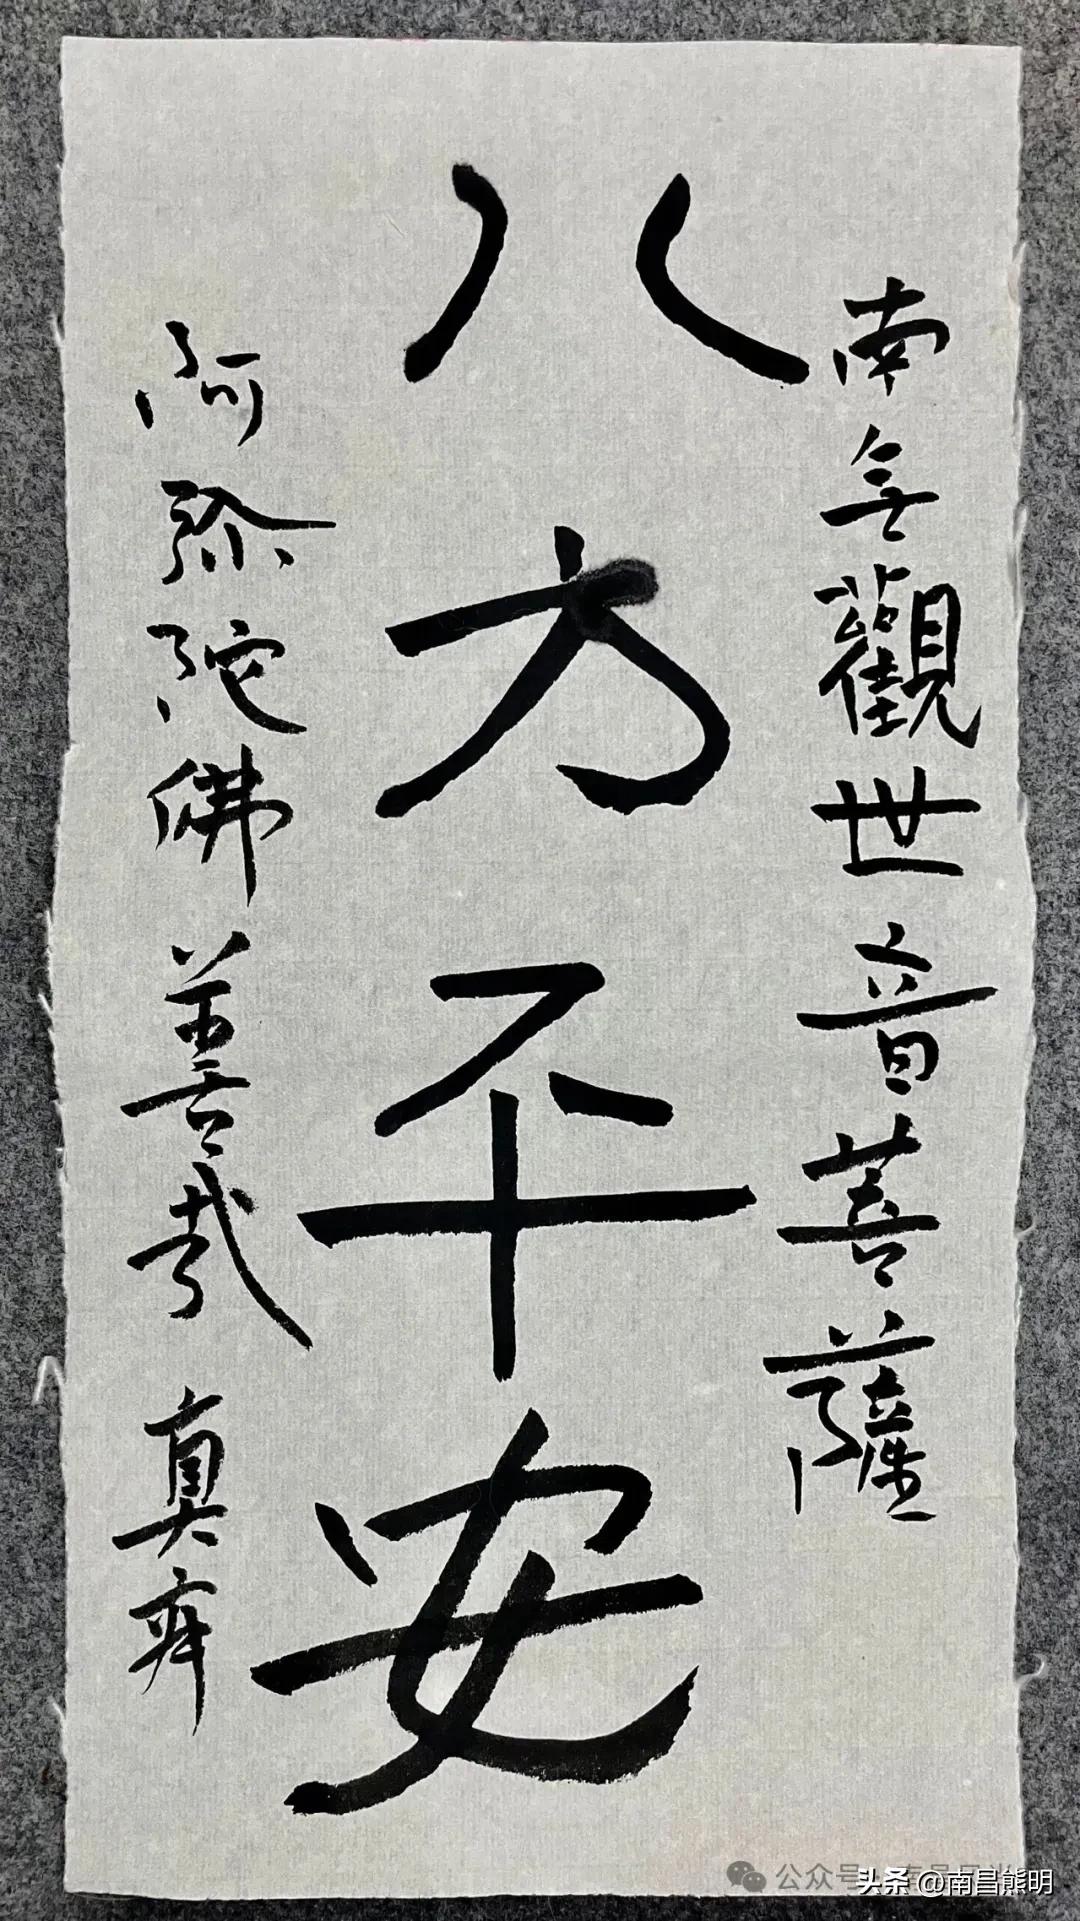 南無觀世音菩薩
八方平安
阿弥陀佛 善哉 真
公众号
头条 @南昌熊明